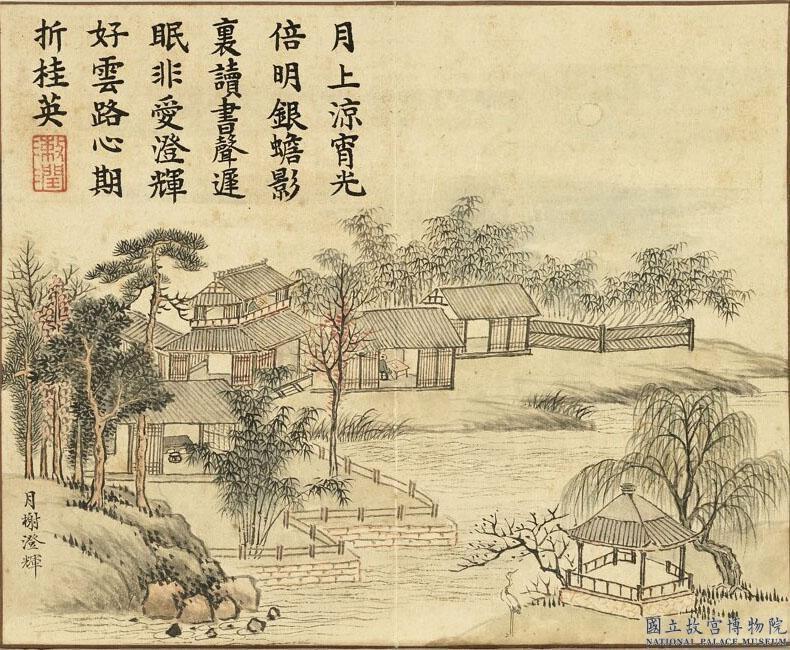 月上涼宵光
倍明銀蟾影
裏讀書聲遲
眠非愛澄輝
好雲路心期
折桂英
敷潤
月榭澄輝
國立故宮博物院
NATIONAL PALACE MUSEUM